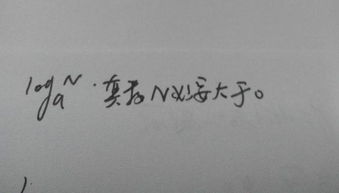 logₐN.真数N必须大于0